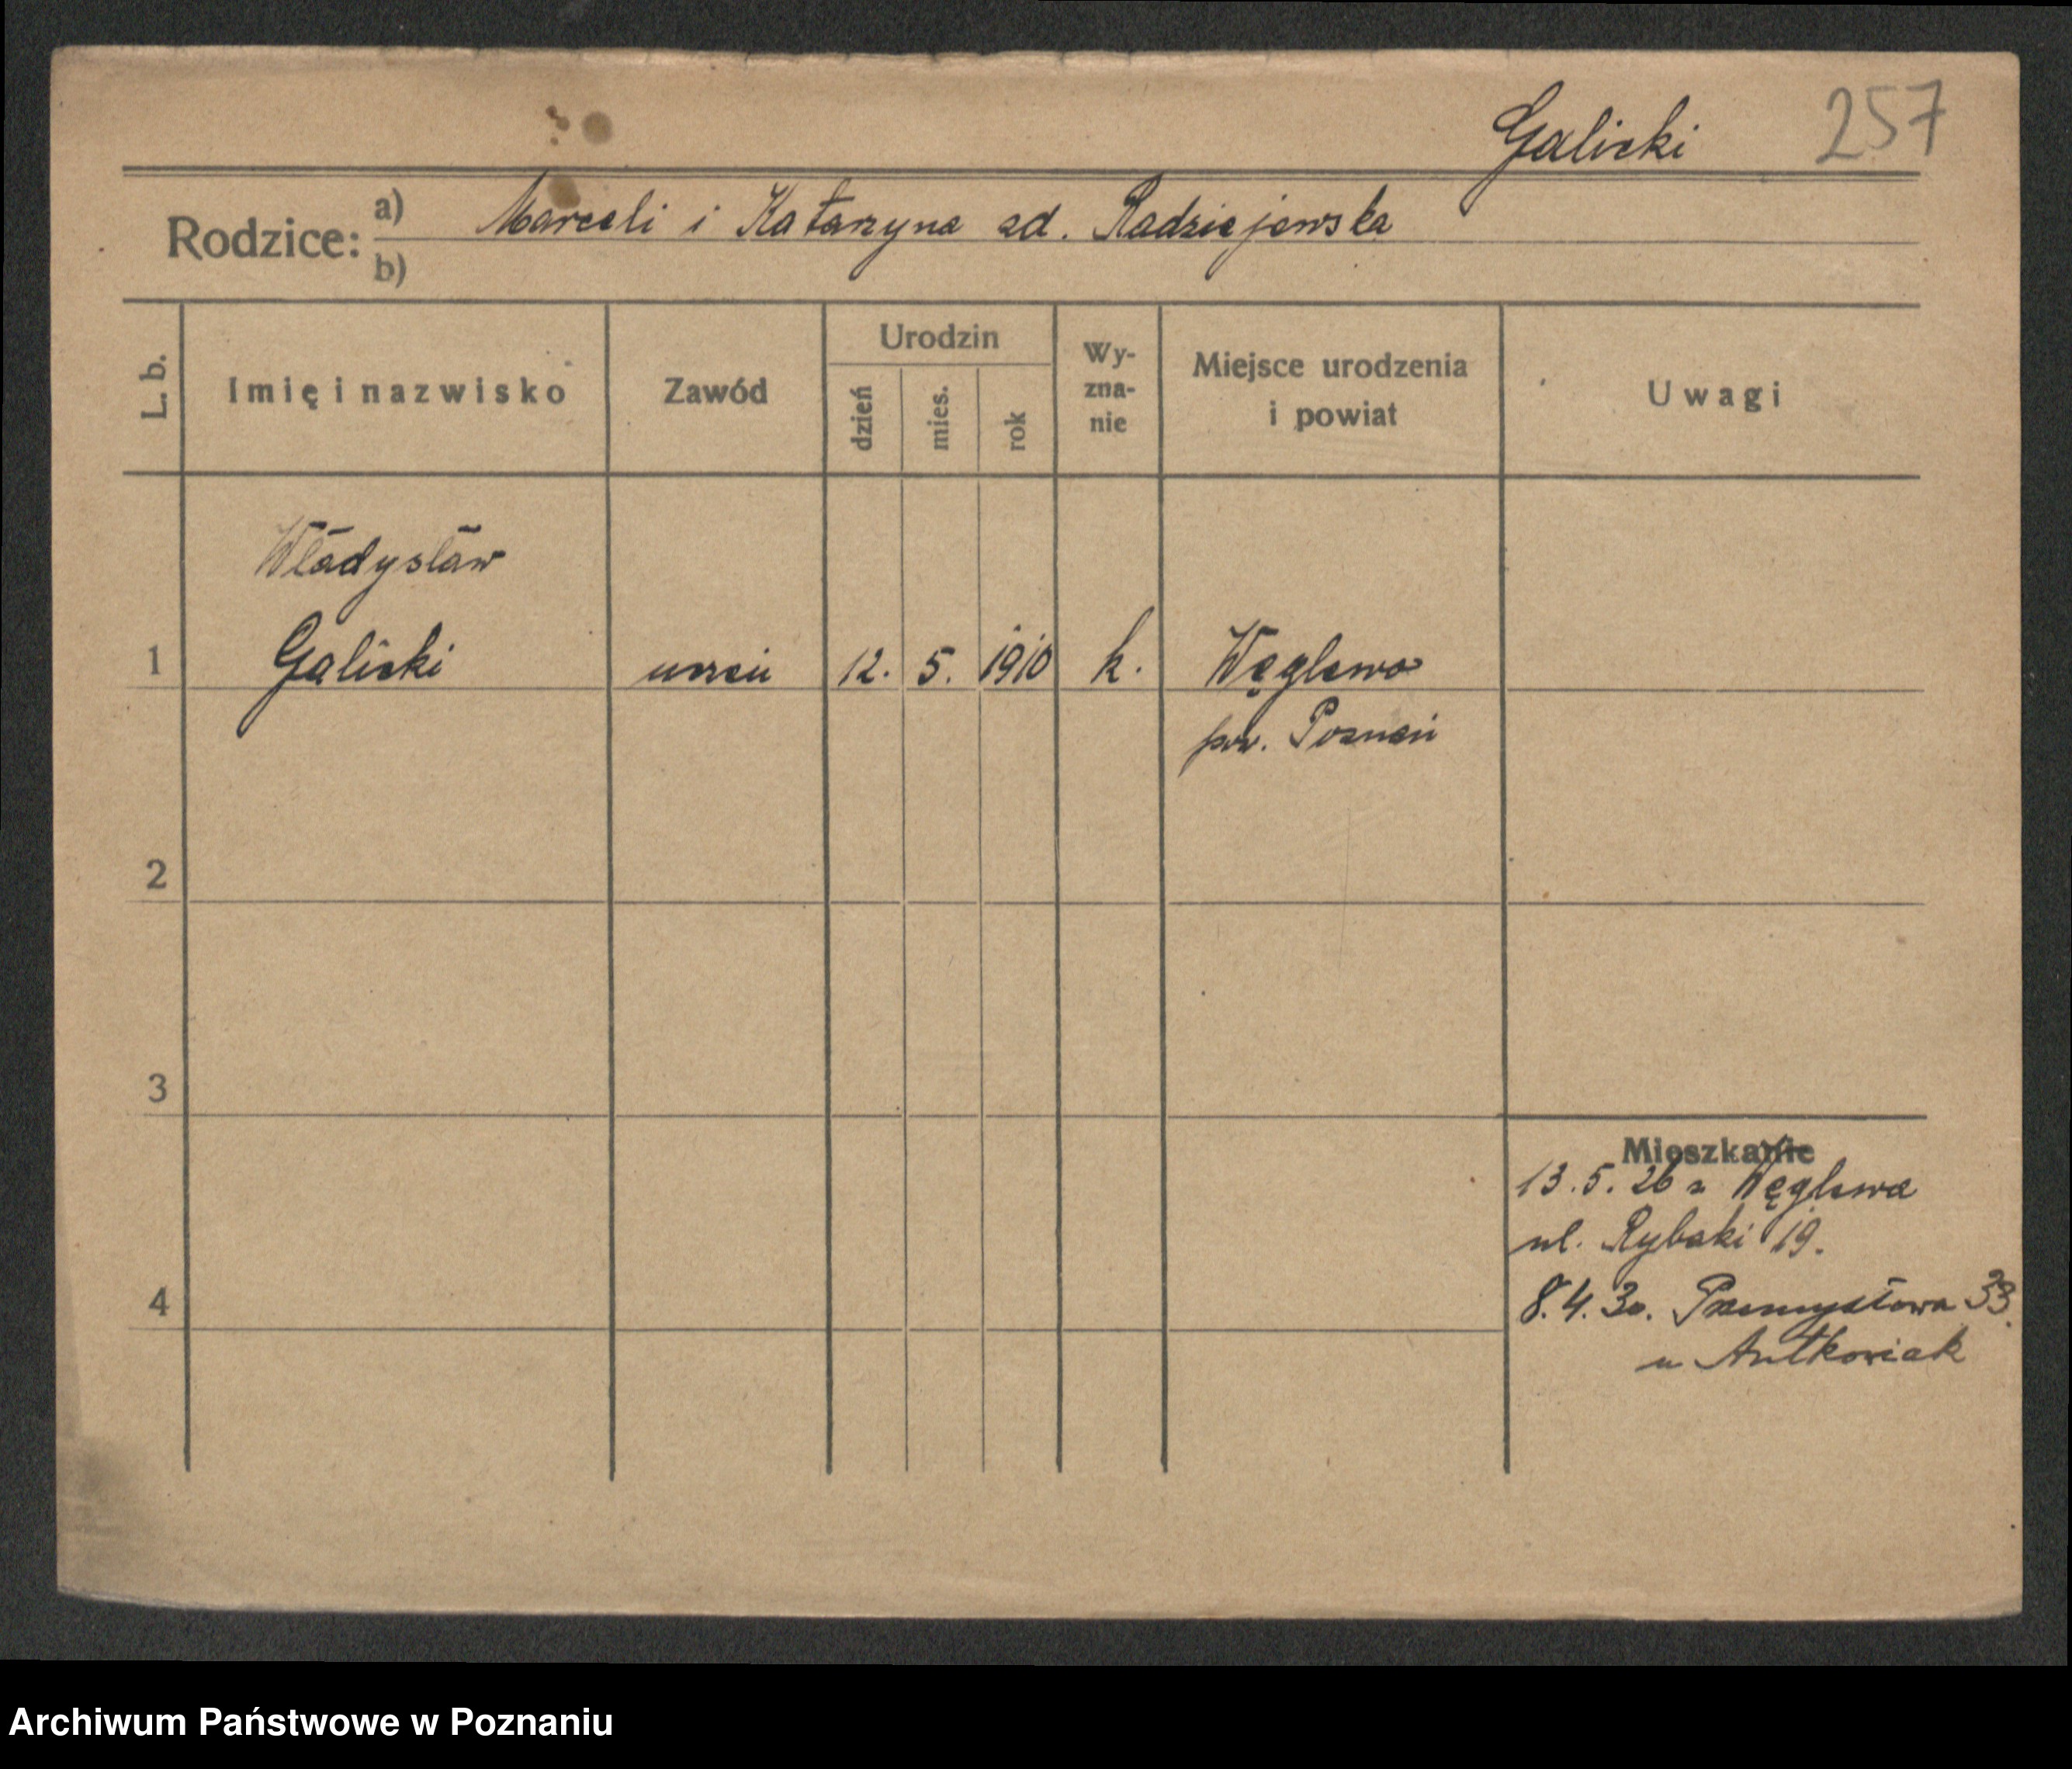 Galicki 257
Rodzice: a) Marceli i Katarzyna zd. Radziejewska
b)
L. b. Imię i nazwisko Zawód Urodzin dzień mies. rok Wy-zna-nie Miejsce urodzenia i powiat Uwagi
Władysław
1 Galicki uczeń 12. 5. 1910 k. Węglewo
pow. Poznań
2
3
Mieszkanie
13.5.26 z Węglewa
ul. Rybaki 19.
4 8.4.30. Przemysłowa 33.
u Antkowiak
Archiwum Państwowe w Poznaniu